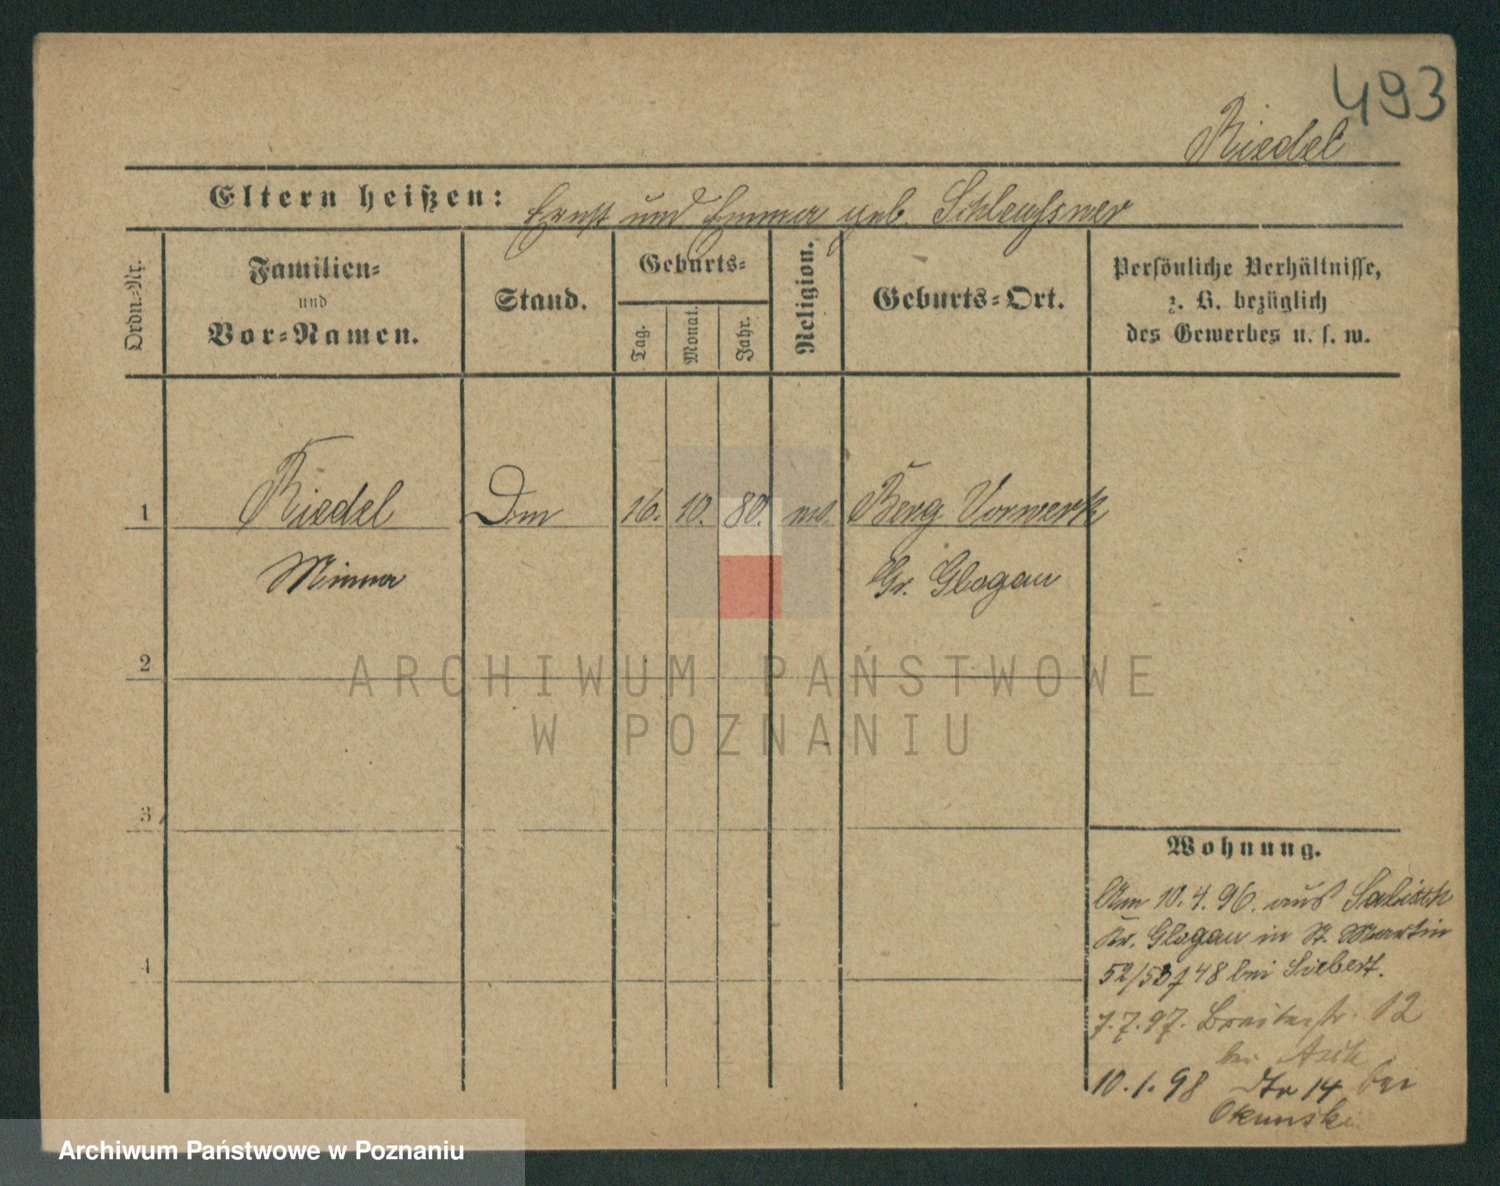 493
Riedel
Eltern heißen: Ernst und Emma geb. Schleussner
Ordn.-Nr.
Familien-
und
Vor-Namen.
Stand.
Geburts-
Tag.
Monat.
Jahr.
Religion.
Geburts-Ort.
Persönliche Verhältnisse,
z. B. bezüglich
des Gewerbes u. s. w.
1 Riedel 16. 10. 80. Berg Vorwerk
Minna
Gr. Glogau
2
ARCHIWUM PAŃSTWOWE
W POZNANIU
3
Wohnung.
Am 10.4.96. aus
Kr. Glogau in St. Martin
4
52/53 f 48 bei Siebert.
7.7.97. Breitestr. 12
bei
10.1.98 14 bei
Okunski
Archiwum Państwowe w Poznaniu